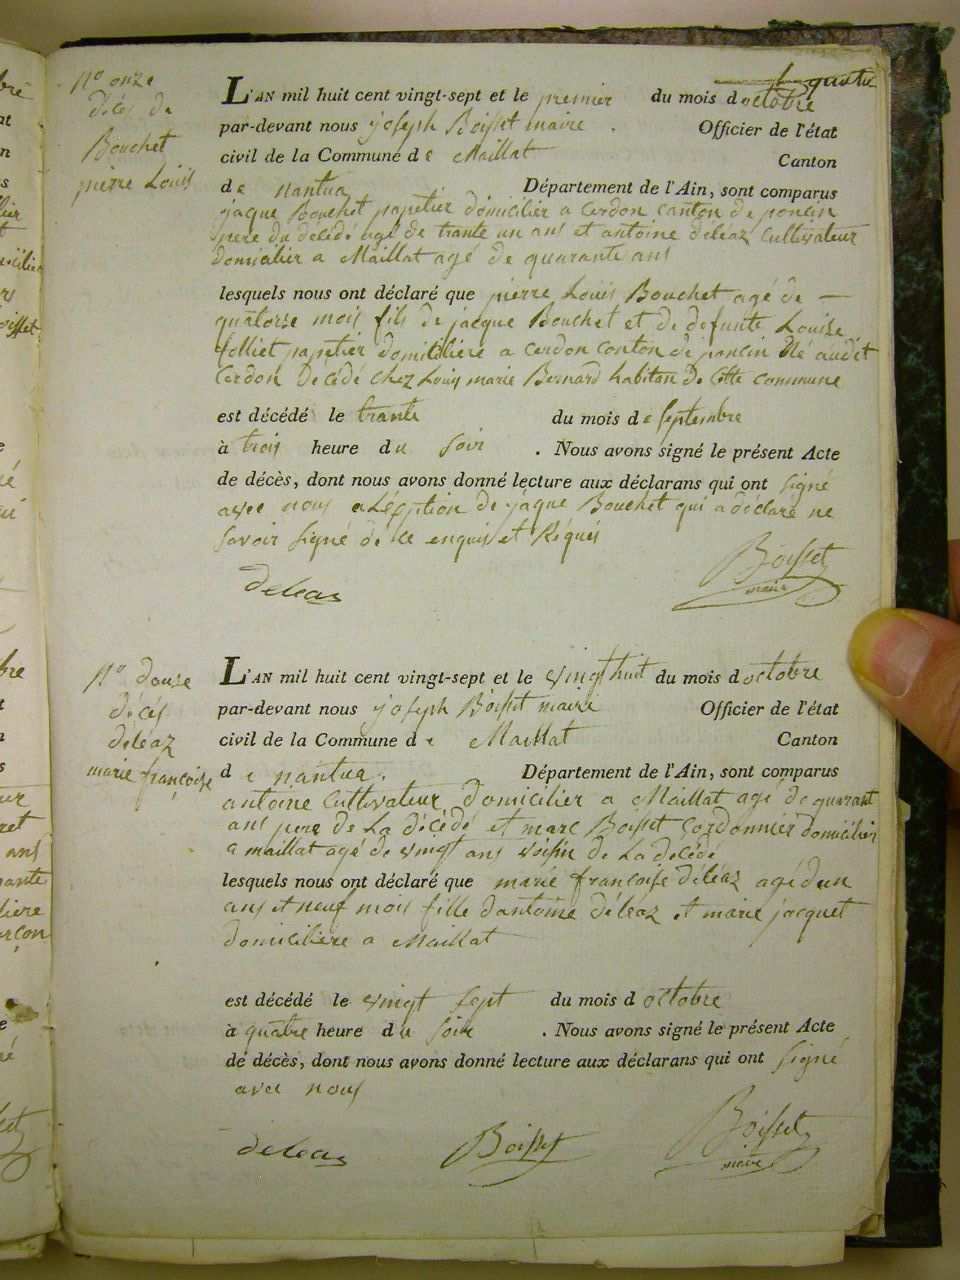 quatre
N.º onze
décés de
Bouchet
pierre Louis
L'AN mil huit cent vingt-sept et le premier du mois d octobre
par-devant nous joseph Boisset maire . Officier de l'état
civil de la Commune de Maillat Canton
de nantua Département de l'Ain, sont comparus
jaque Bouchet papetier domicilier a cerdon canton de poncin
pere du décédé agé de trante un ans et antoine deléaz cultivateur
domicilier a Maillat agé de quarante ans
lesquels nous ont déclaré que pierre Louis Bouchet agé de —
quatorse mois fils de jacque Bouchet et de defunte Louise
folliet papetier domiciliere a cerdon conton de poncin né audit
Cerdon Decédé chez Louis marie Bernard habitan de cette commune
est décédé le trante du mois de septembre
à trois heure du soir . Nous avons signé le présent Acte
de décès, dont nous avons donné lecture aux déclarans qui ont signé
avec nous a Léxption de jaque Bouchet qui a déclaré ne
savoir signé de ce enquis et Réquis
deleaz
Boisset
maire
N.º douse
décés
deléaz
marie françoise
L'AN mil huit cent vingt-sept et le vingt huit du mois d octobre
par-devant nous joseph Boisset maire Officier de l'état
civil de la Commune de Maillat Canton
de nantua. Département de l'Ain, sont comparus
antoine cultivateur domicilier a Maillat agé de quarant
ans pere de La décédé et marc Boisset Cordonnier domicilier
a maillat agé de vingt ans voisin de La decédé
lesquels nous ont déclaré que marie françoise deléaz agé dun
ans et neuf mois fille dantoine déléaz et marie jacquet
domiciliere a Maillat
est décédé le vingt sept du mois d octobre
à quatre heure du soir . Nous avons signé le présent Acte
de décès, dont nous avons donné lecture aux déclarans qui ont signé
avec nous
deleaz
Boisset
Boisset
maire